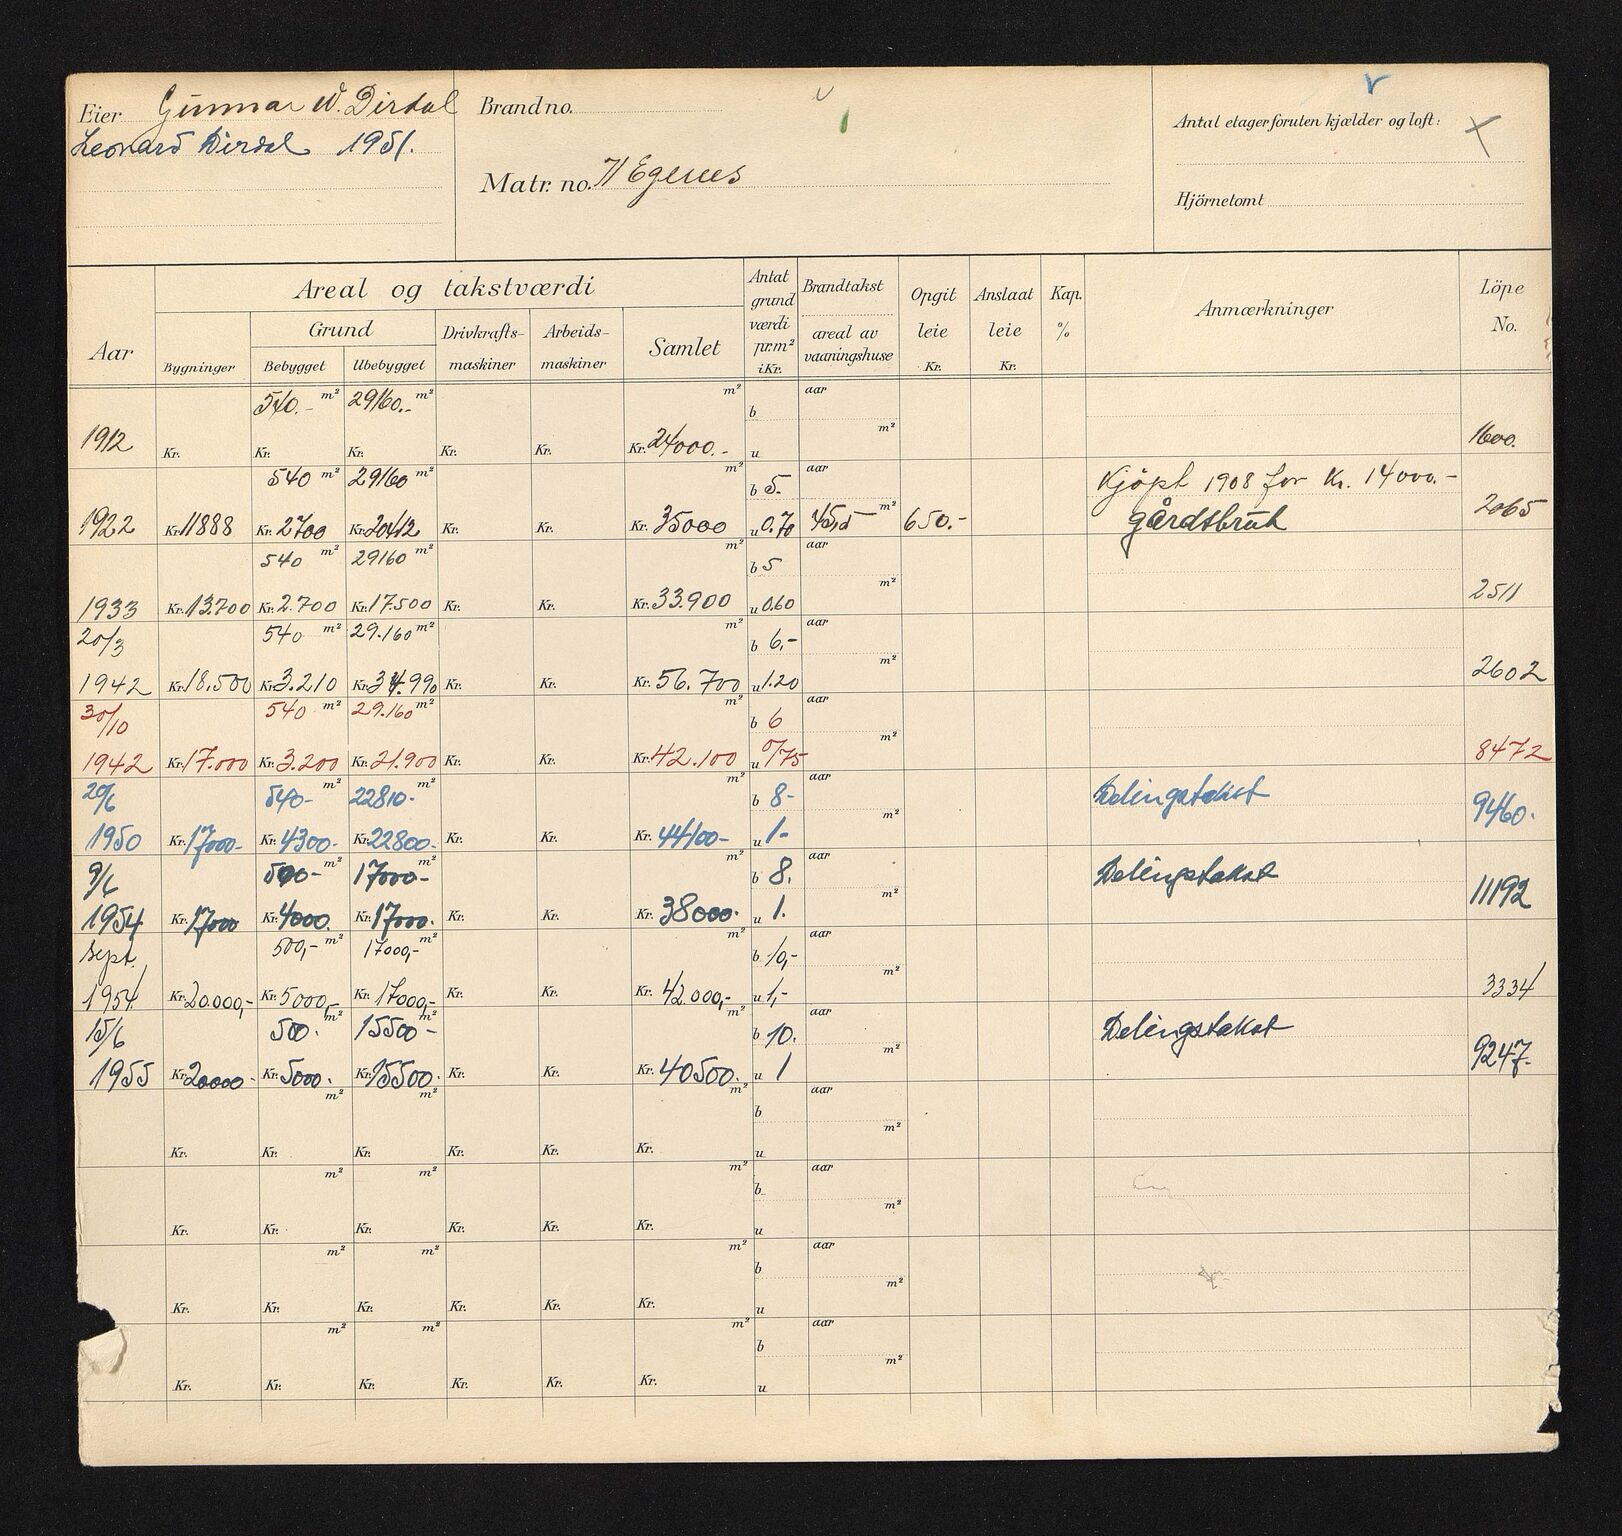 Eier Gunnar W. Dirdal
Leonard Dirdal 1951.
Brandno.
Matr. no. 7/ Egenes
Antal etager foruten kjælder og loft:
Hjörnetomt
Aar
Areal og takstværdi
Bygninger
Grund
Bebygget Ubebygget
Drivkrafts-maskiner
Arbeids-maskiner
Samlet
Antat grund værdi pr.m² i Kr.
Brandtakst
areal av vaaningshuse
Opgit leie Kr.
Anslaat leie Kr.
Kap. %
Anmærkninger
Löpe No.
540.- m² 29160.- m² m² b aar
1912 Kr. Kr. Kr. Kr. Kr. Kr. 24000.- u m² 1600.
540 m² 29160 m² m² b 5. aar Kjöpt 1908 for Kr. 14000.-
1922 Kr. 11888 Kr. 2700 Kr. 20412 Kr. Kr. Kr. 35000 u 0.70 45,5 m² 650.- gårdsbruk 2065
540 m² 29160 m² m² b 5 aar
1933 Kr. 13.700 Kr. 2.700 Kr. 17.500 Kr. Kr. Kr. 33.900 u 0.60 m² 2511
20/3 540 m² 29.160 m² m² b 6,- aar
1942 Kr. 18.500 Kr. 3.210 Kr. 34.990 Kr. Kr. Kr. 56.700 u 1.20 m² 2602
30/10 540 m² 29.160 m² m² b 6 aar
1942 Kr. 17.000 Kr. 3.200 Kr. 21.900 Kr. Kr. Kr. 42.100 u 0/75 m² 8472
20/6 540- m² 22810- m² m² b 8- aar Delingstakst
1950 Kr. 17000- Kr. 4300- Kr. 22800- Kr. Kr. Kr. 44100- u 1- m² 9460.
9/6 500- m² 17000- m² m² b 8. aar Delingstakst
1954 Kr. 17000 Kr. 4000. Kr. 17000. Kr. Kr. Kr. 38000. u 1. m² 11192
Sept. 500,- m² 17000,- m² m² b 10,- aar
1954 Kr. 20.000,- Kr. 5000,- Kr. 17000,- Kr. Kr. Kr. 42.000,- u 1,- m² 3334
15/6 500. m² 15500- m² m² b 10. aar Delingstakst
1955 Kr. 20000- Kr. 5000. Kr. 15500. Kr. Kr. Kr. 40500. u 1 m² 9247-
m² m² m² b aar
Kr. Kr. Kr. Kr. Kr. Kr. u m²
m² m² m² b aar
Kr. Kr. Kr. Kr. Kr. Kr. u m²
m² m² m² b aar
Kr. Kr. Kr. Kr. Kr. Kr. u m²
m² m² m² b aar
Kr. Kr. Kr. Kr. Kr. Kr. u m²